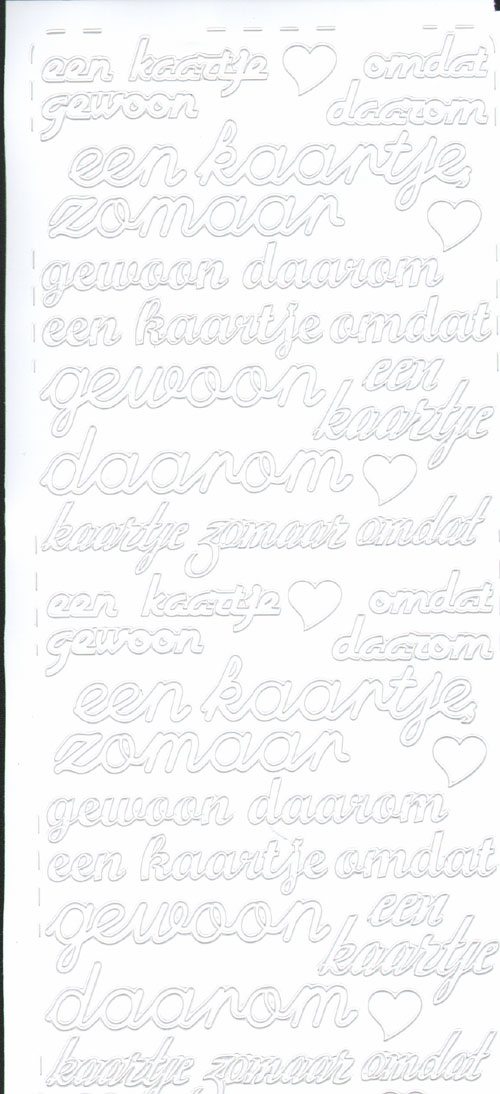 een kaartje omdat
gewoon daarom
een kaartje,
zomaar
gewoon daarom
een kaartje omdat
gewoon een
kaartje
daarom
kaartje zomaar omdat
een kaartje omdat
gewoon daarom
een kaartje,
zomaar
gewoon daarom
een kaartje omdat
gewoon een
kaartje
daarom
kaartje zomaar omdat